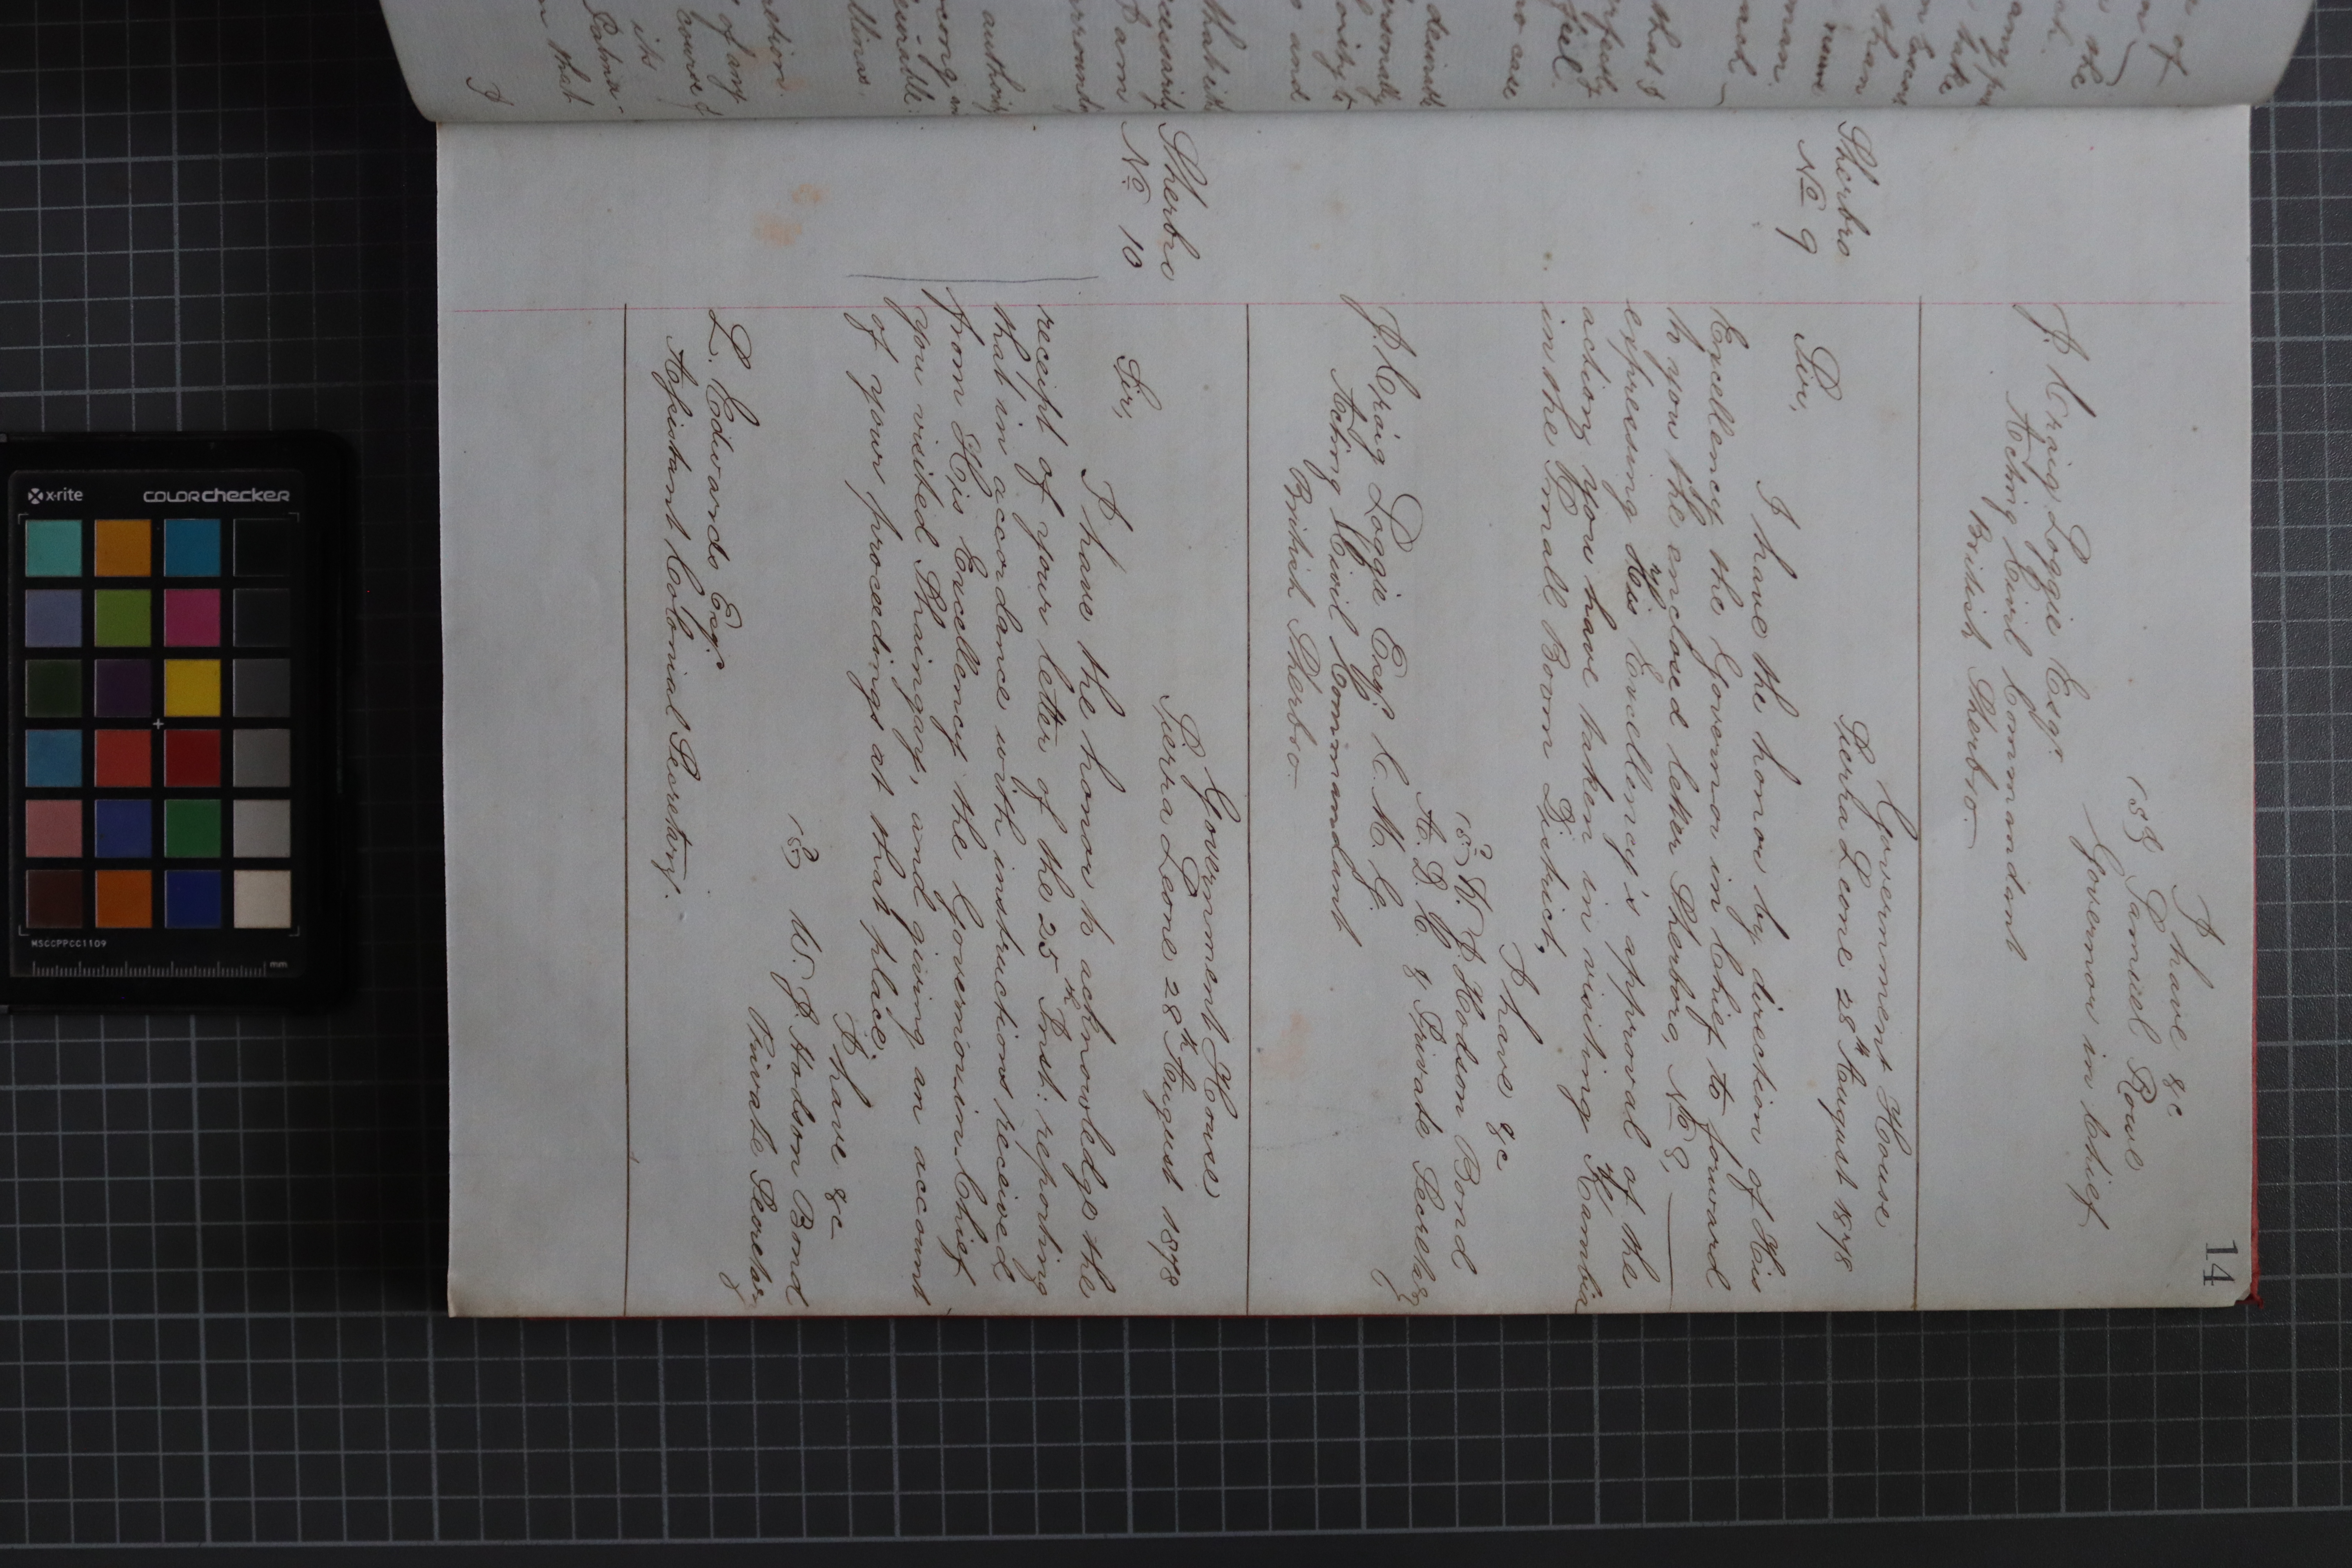 14
I have &c
Samuel Rowe
Governor in Chief
J. Craig Loggie Esqr.
Acting Civil Commandant
British Sherbro.
Sherbro
No 9
Government House
Sierra Leone 28th August 1878
Sir,
I have the honor by direction of His
Excellency the Governor in Chief to forward
to you the enclosed letter Sherbro, No 8,
expressing His Excellency's approval of the
action you have taken in visiting Kambia
in the Small Boom District,
I have &c
W. J. Hodson Bond
A. D. C. & Private Secretary
J. Craig Loggie Esqr. C. M. G.
Acting Civil Commandant
British Sherbro
Sherbro
No 10
Government House
Sierra Leone 28th August 1878
Sir,
I have the honor to acknowledge the
receipt of your letter of the 25th Inst: reporting
that in accordance with instructions received
from His Excellency the Governor in Chief
you visited Shaingay, and giving an account
of your proceedings at that place.
I have &c
W. J. Hodson Bond
Private Secretary
L. Edwards Esqr.
Assistant Colonial Secretary.
of
the
take
than
man.
that I
feel.
no case
desirable
personally
and
that it
I am
authority
of any
course of
its
Palma-
that
I
x-rite
colorchecker
MSCCPPCC1109
mm